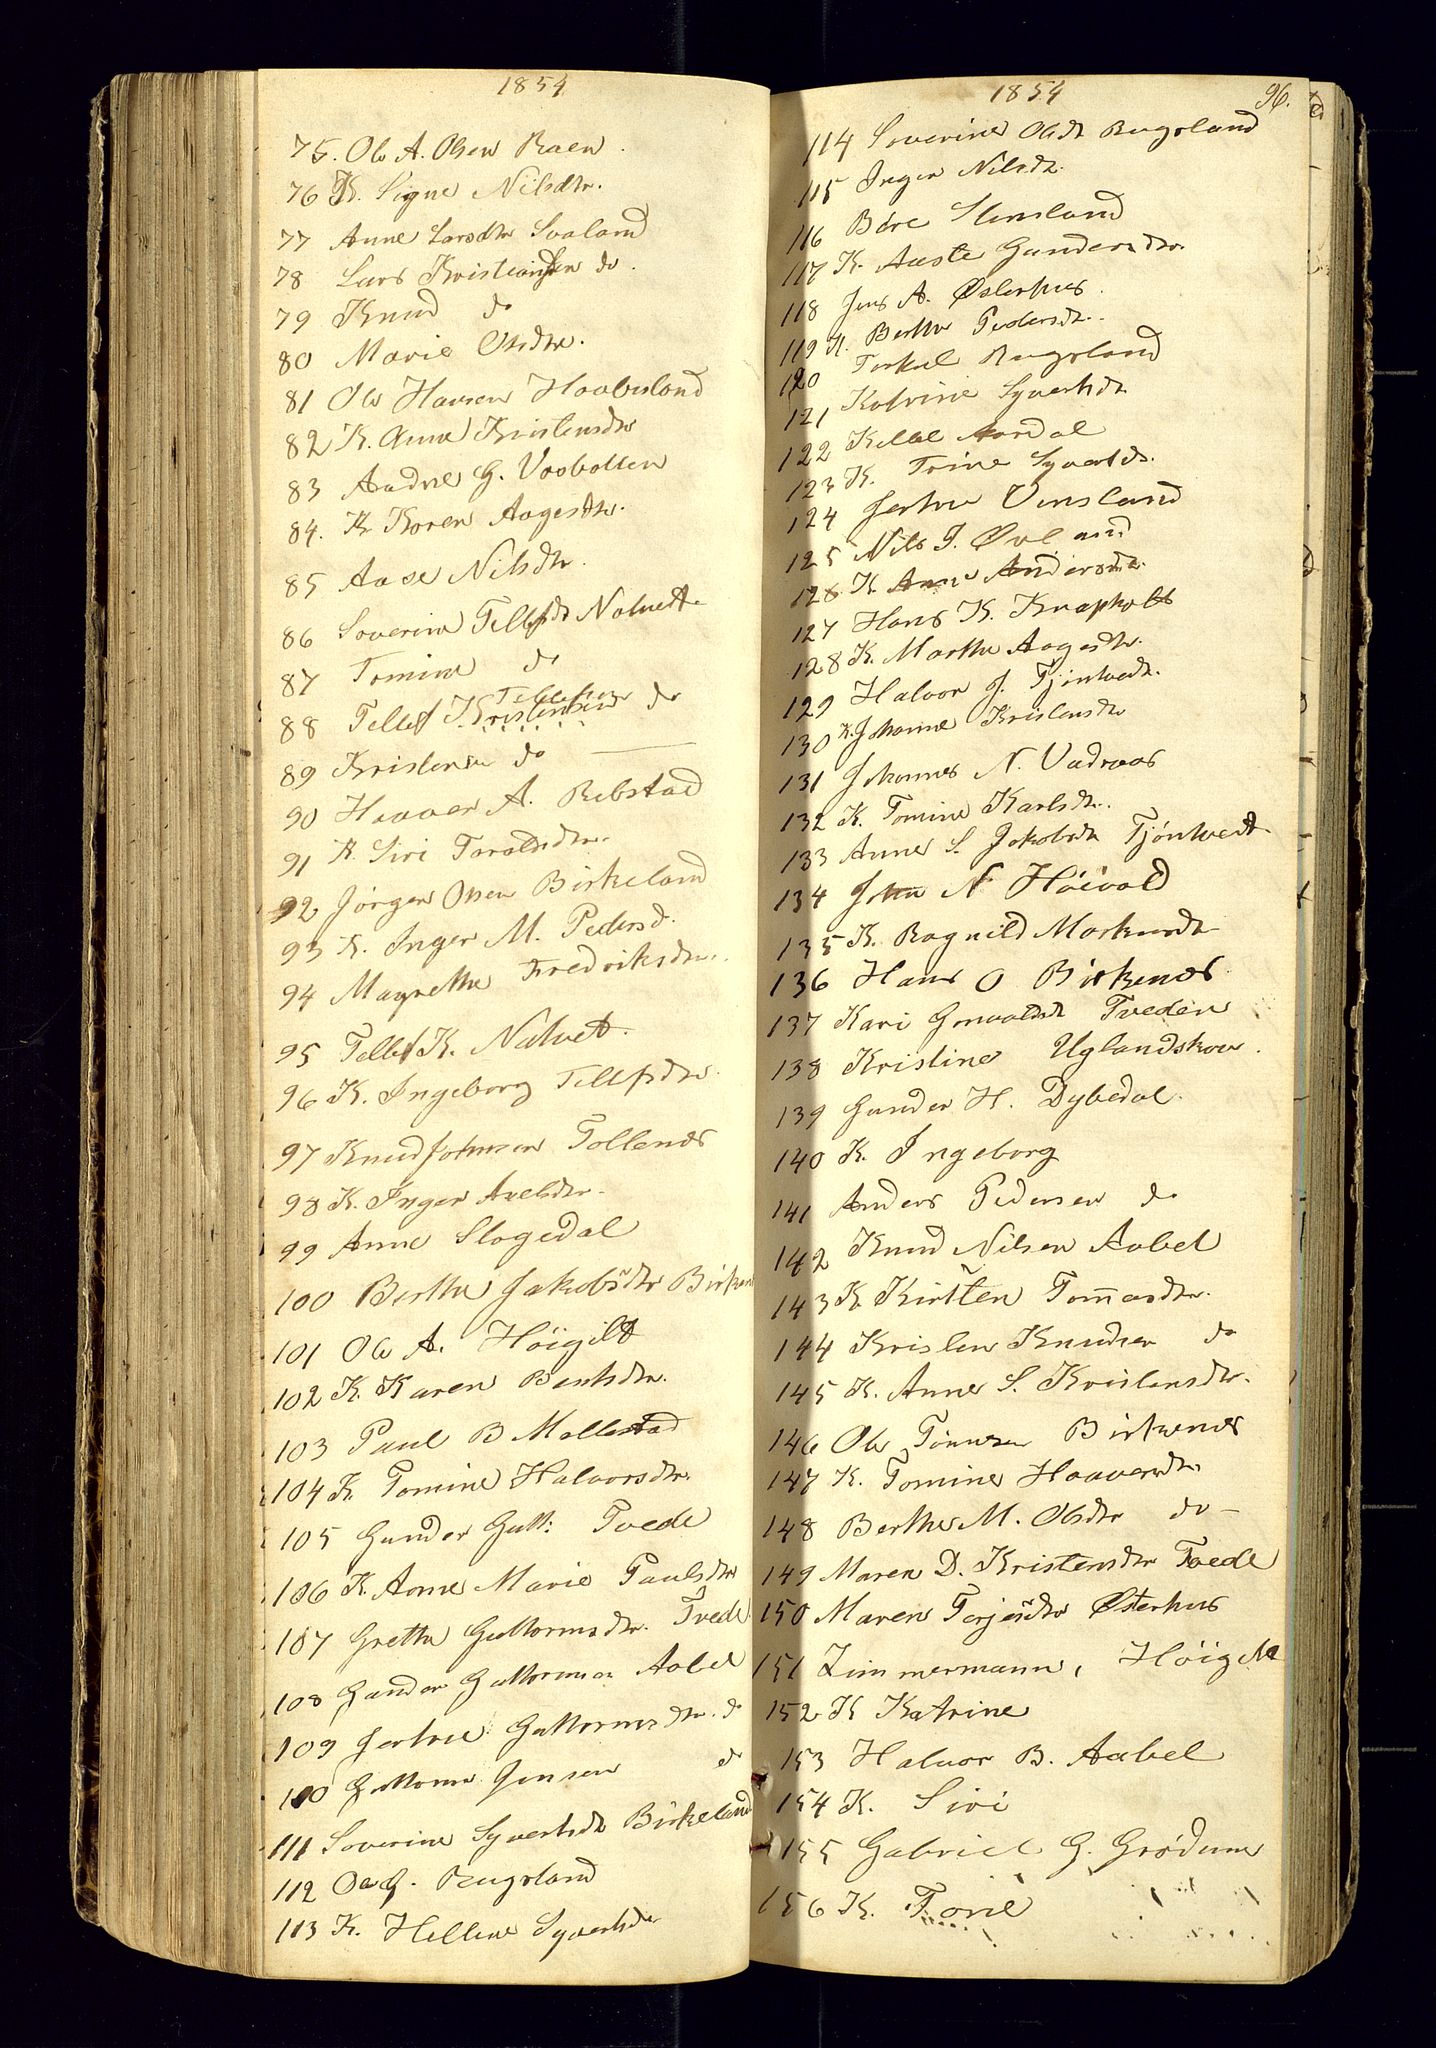 1854
75. Ole A. Olsen Raen.
76 K. Signe Nilsdtr.
77 Anne Larsdtr Svaland
78 Lars Kristiansen do.
79 Knud do
80 Marie Olsdtr.
81 Ole Hansen Haabesland
82 K. Anne Kristensdtr
83 Andne G. Vasbotten
84. K Karen Aagesdtr.
85 Aase Nilsdtr.
86 Severine Tellefsdt Natvedt
87 Tomine do
Tellefsen
88 Tellef Kristensen do
89 Kristense do
90 Haaver A. Rebstad
91 K. Siri Taraldsdtr.
92 Jørgen Olsen Birkeland
93 K. Inger M. Pedersd.
94 Magrethe Fredriksdtr.
95 Tellef K. Natvet.
96 K. Ingeborg Tellefsdtr.
97 Knud Johnsen Tollenæs
98 K. Inger Axelsdtr.
99 Anne Slogedal
100 Berthe Jakobsdtr Birken
101 Ole A. Høigilt
102 K. Karen Bentsdtr.
103 Paul B Mollestad
104 K. Tomine Halvorsdtr.
105 Gunder Gutt: Tvede
106 K. Anne Marie Paulsdtr
107 Grethe Guttormsdtr. Tvede
108 Gunder Guttormsen Aabel
109 Jertrue Guttormsdtr. do
110 Guttorm Jensen do
111 Severine Syvertsdt Birkeland
112 Ole G. Rugsland
113 K. Hellene Syvertsdtr
1854
96.
114 Severine Olsdt Rugsland
115 Inger Nilsdt.
116 Børe Stensland
117 K. Aaste Gundersdtr.
118 Jens A. Østerhus.
119 K. Berthe Pedersdt.
120 Torkel Rugsland
121 Katrine Syvertsdt
122 Kittel Aardal
123 K. Trine Syvertsdt.
124 Jertru Vensland
125 Nils J. Øvland
126 K. Anne Andersdtr.
127 Hans K. Knapholt
128 K. Marthe Aagesdtr.
129 Halvor J. Tjintvedt.
130 K. Johanne Kristensdtr
131 Johannes N. Vadraas
132 K. Tomine Karlsdtr.
133 Anne S. Jakobsdt Tjøntvedt
134 John N Høivold
135 K. Ragnild Markusdt
136 Hans O Birkenæs.
137 Kari Gunvaldsdt Tveden
138 Kristine Uglandskov.
139 Gunder H. Dybedal.
140 K. Ingeborg
141 Anders Pedersen do
142 Knud Nilsen Aabel
143 K. Kirsten Tommasdtr.
144 Kristen Knudsen do
145 K. Anne S. Kristensdtr.
146 Ole Tønnesen Birkenes
147 K. Tomine Haaversdt.
148 Berthe M. Olsdtr do
149 Maren D. Kristensdtr Tvede
150 Maren Terjesdtr Østerhus
151 Zimmermann, Høigilt
152 K Katrine
153 Halvor B. Aabel
154 K. Siri
155 Gabriel G. Grødum
156 K. Toril